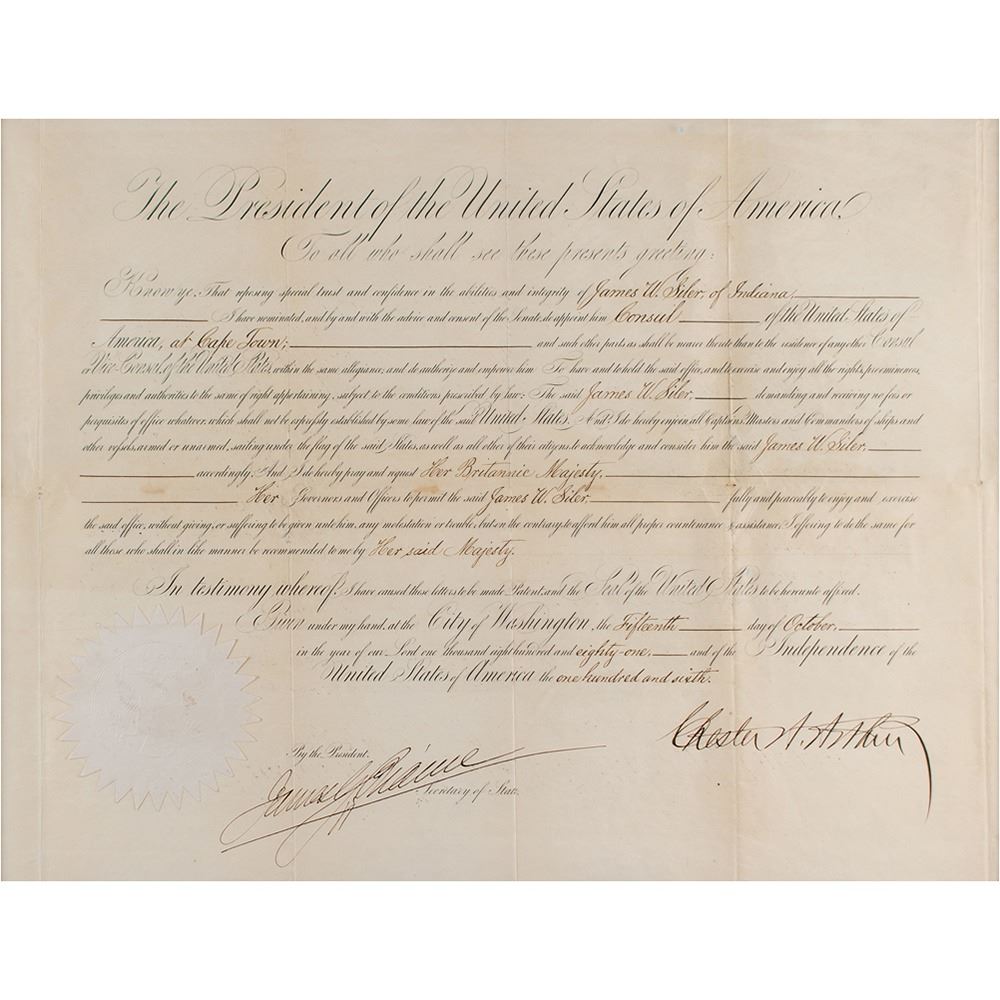 The President of the United States of America,
To all who shall see these presents greeting:
Know ye, That reposing special trust and confidence in the abilities and integrity of James W. Siler, of Indiana,
I have nominated, and by and with the advice and consent of the Senate, do appoint him Consul of the United States of
America, at Cape Town; and such other parts as shall be nearer thereto than to the residence of any other Consul
or Vice Consul of the United States, within the same allegiance; and do authorize and empower him To have and to hold the said office, and to exercise and enjoy all the rights, preeminences,
privileges and authorities to the same of right appertaining, subject to the conditions prescribed by law: The said James W. Siler, demanding and receiving no fees or
perquisites of office whatever, which shall not be expressly established by some law of the said United States. And I do hereby enjoin all Captains, Masters and Commanders of ships and
other vessels, armed or unarmed, sailing under the flag of the said States, as well as all other of their citizens, to acknowledge and consider him the said James W. Siler,
accordingly. And I do hereby pray and request Her Britannic Majesty,
Her Governors and Officers to permit the said James W. Siler fully and peaceably to enjoy and exercise
the said office, without giving, or suffering to be given unto him, any molestation or trouble, but on the contrary to afford him all proper countenance & assistance; I offering to do the same for
all those who shall in like manner be recommended to me by Her said Majesty.
In testimony whereof, I have caused these letters to be made Patent, and the Seal of the United States to be hereunto affixed.
Given under my hand, at the City of Washington, the Fifteenth day of October,
in the year of our Lord one thousand eight hundred and eighty-one, and of the Independence of the
United States of America the one hundred and sixth.
Chester A. Arthur
By the President:
James G. Blaine
Secretary of State.